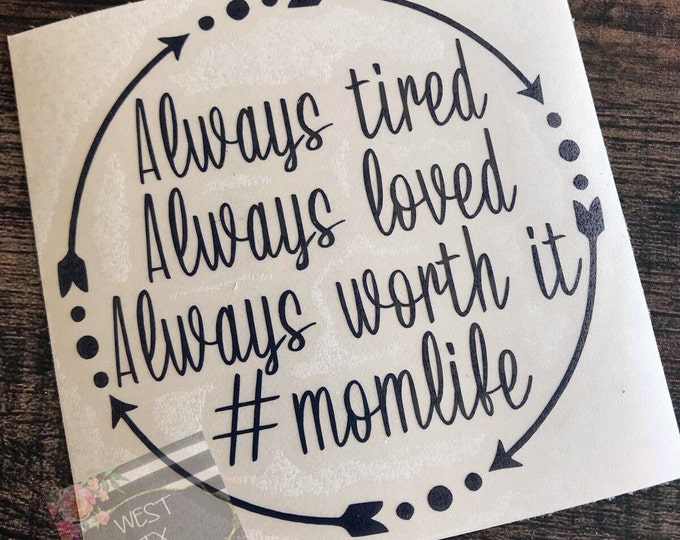 Always tired
Always loved
Always worth it
#momlife
WEST
TX